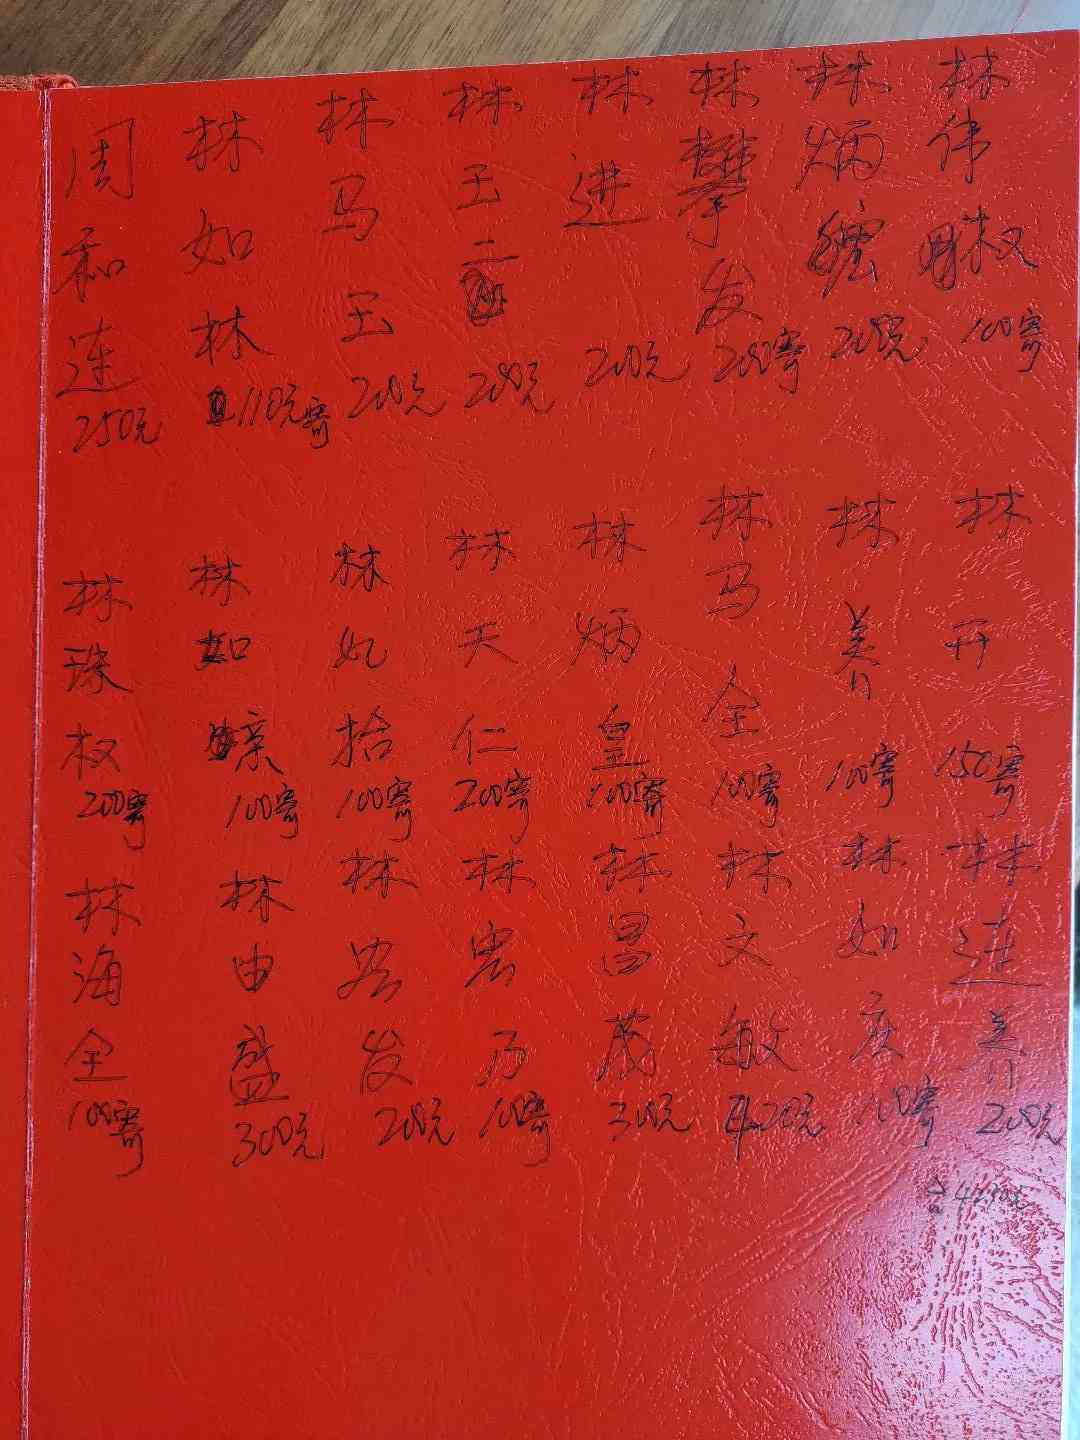 林伟椒 100寄
林炳 200元
林攀发 200寄
林进 200元
林玉二 200元
林马玉 200元
林如林 110元寄
周和连 250元
林开 150寄
林养 100寄
林马全 100寄
林炳皇 100寄
林天仁 200寄
林妃拾 100寄
林如 100寄
林珠权 200寄
林连养 200元
林如庆 100寄
林文敏 420元
林昌茂 300元
林宏乃 100寄
林发 200元
林由盛 300元
林海全 100寄
合